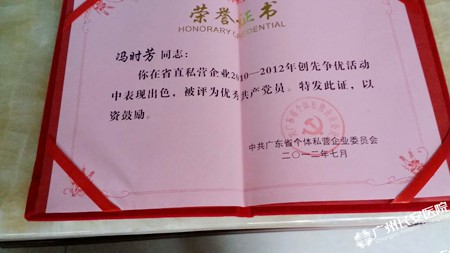 荣誉证书
HONORARY CREDENTIAL
冯时芳同志:
你在省直私营企业2010—2012年创先争优活动
中表现出色,被评为优秀共产党员。特发此证,以
资鼓励。
中共广东省个体私营企业委员会
二〇一二年七月
广州长安医院